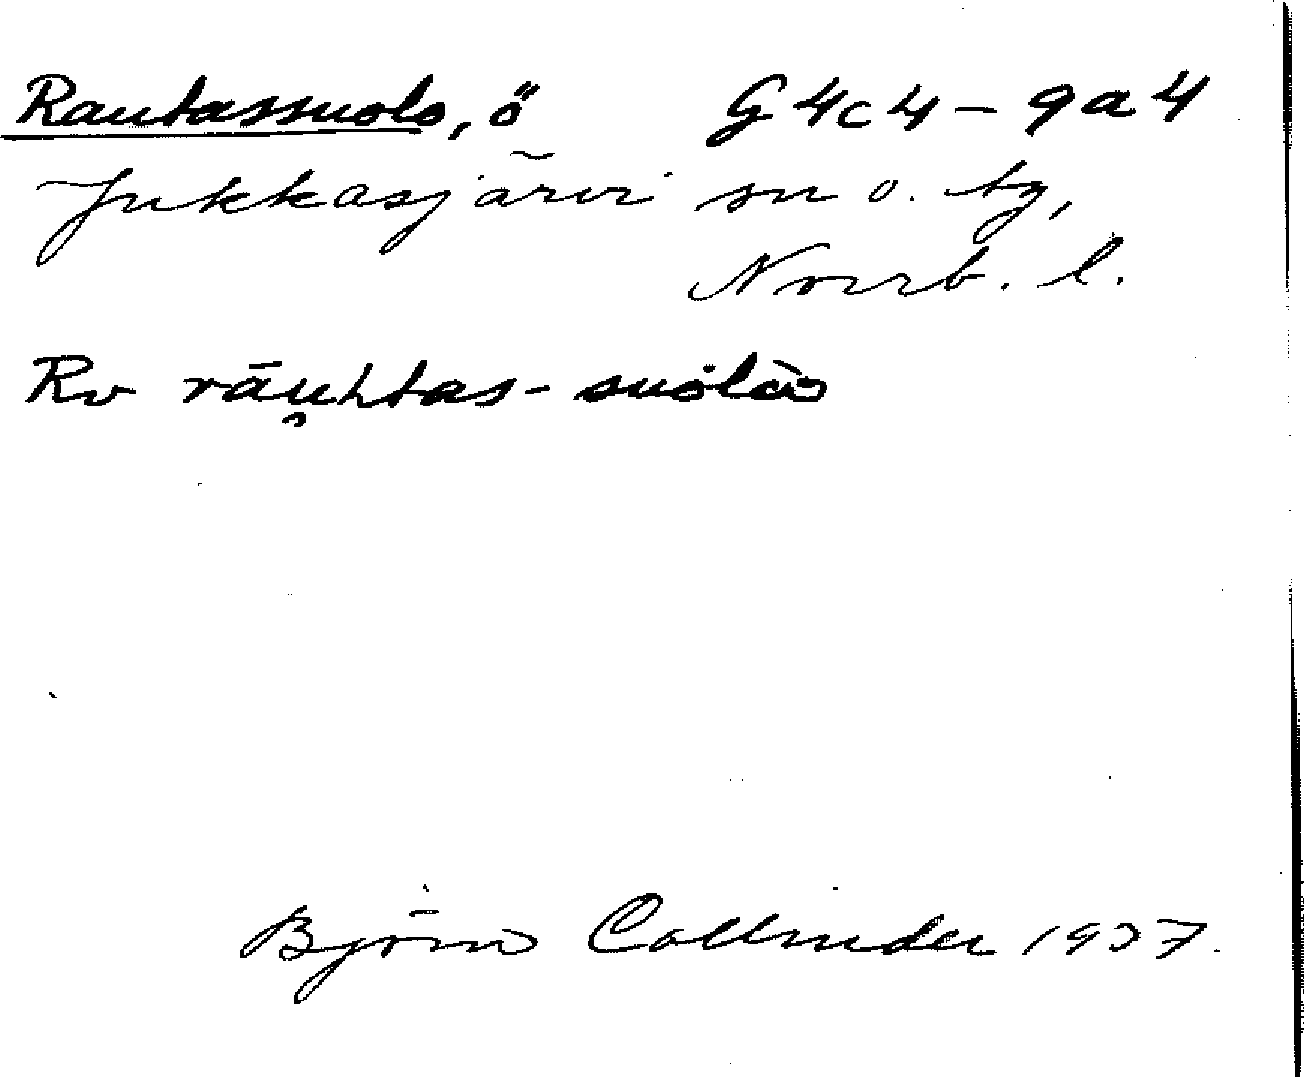 Rautassuolo, ö G4c4-9a4
Jukkasjärvi sn o. tg,
Norrb. l.
Rv rāu̯htas-
Björn Collinder 1937.